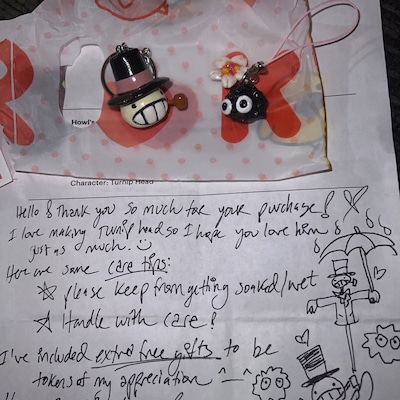 Howl's
Character: Turnip Head
Hello & Thank you so much for your purchase!
I love making Turnip head so I hope you love him
just as much. :)
Here are some care tips:
☆ Please keep from getting soaked/wet
☆ Handle with care!
I've included extra free gifts to be
tokens of my appreciation ^-^